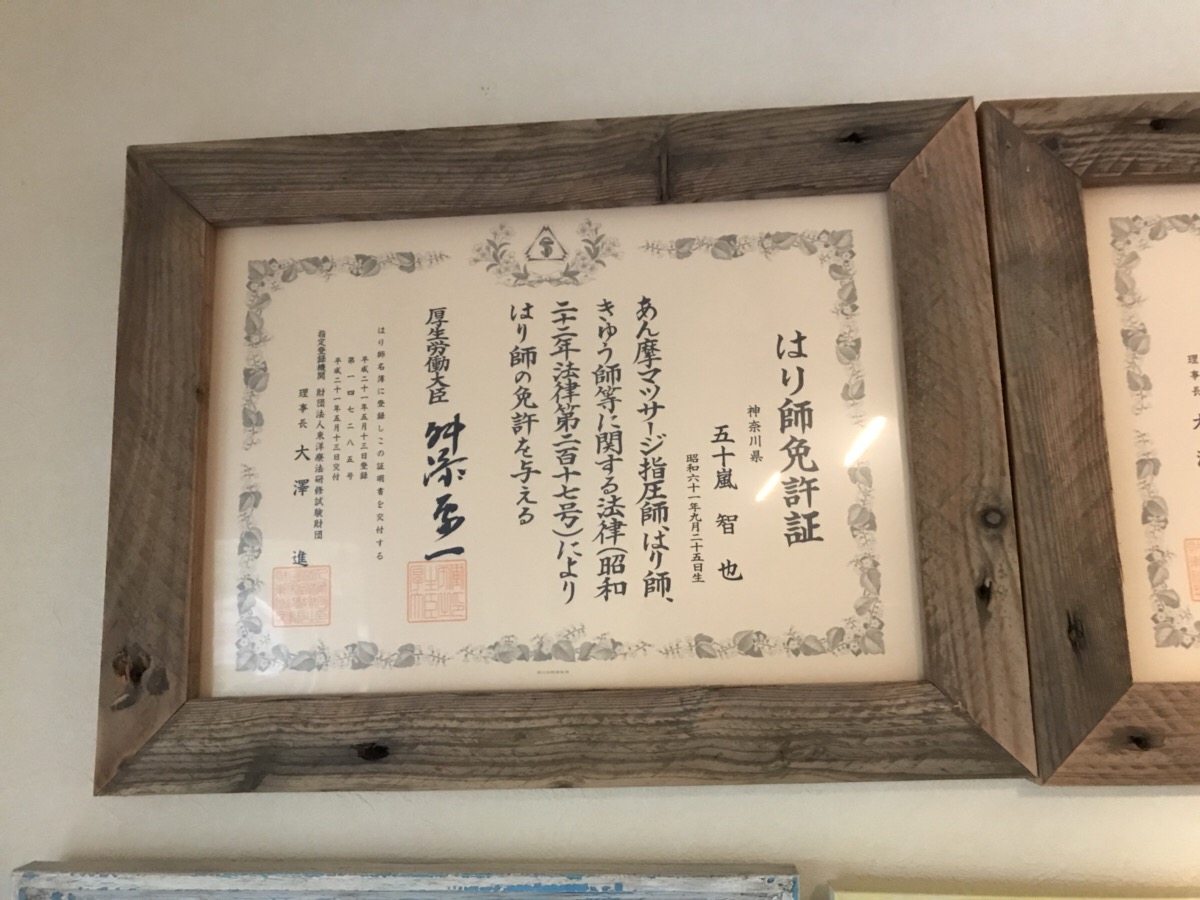 はり師免許証
神奈川県
五十嵐 智也
昭和六十一年九月二十五日生
あん摩マツサージ指圧師、はり師、
きゆう師等に関する法律（昭和
二十二年法律第二百十七号）により
はり師の免許を与える
厚生労働大臣 舛添要一
はり師名簿に登録しこの証明書を交付する
平成二十一年五月十三日登録
第一四七二八五号
平成二十一年五月十三日交付
指定登録機関 財団法人東洋療法研修試験財団
理事長 大澤 進
理事長